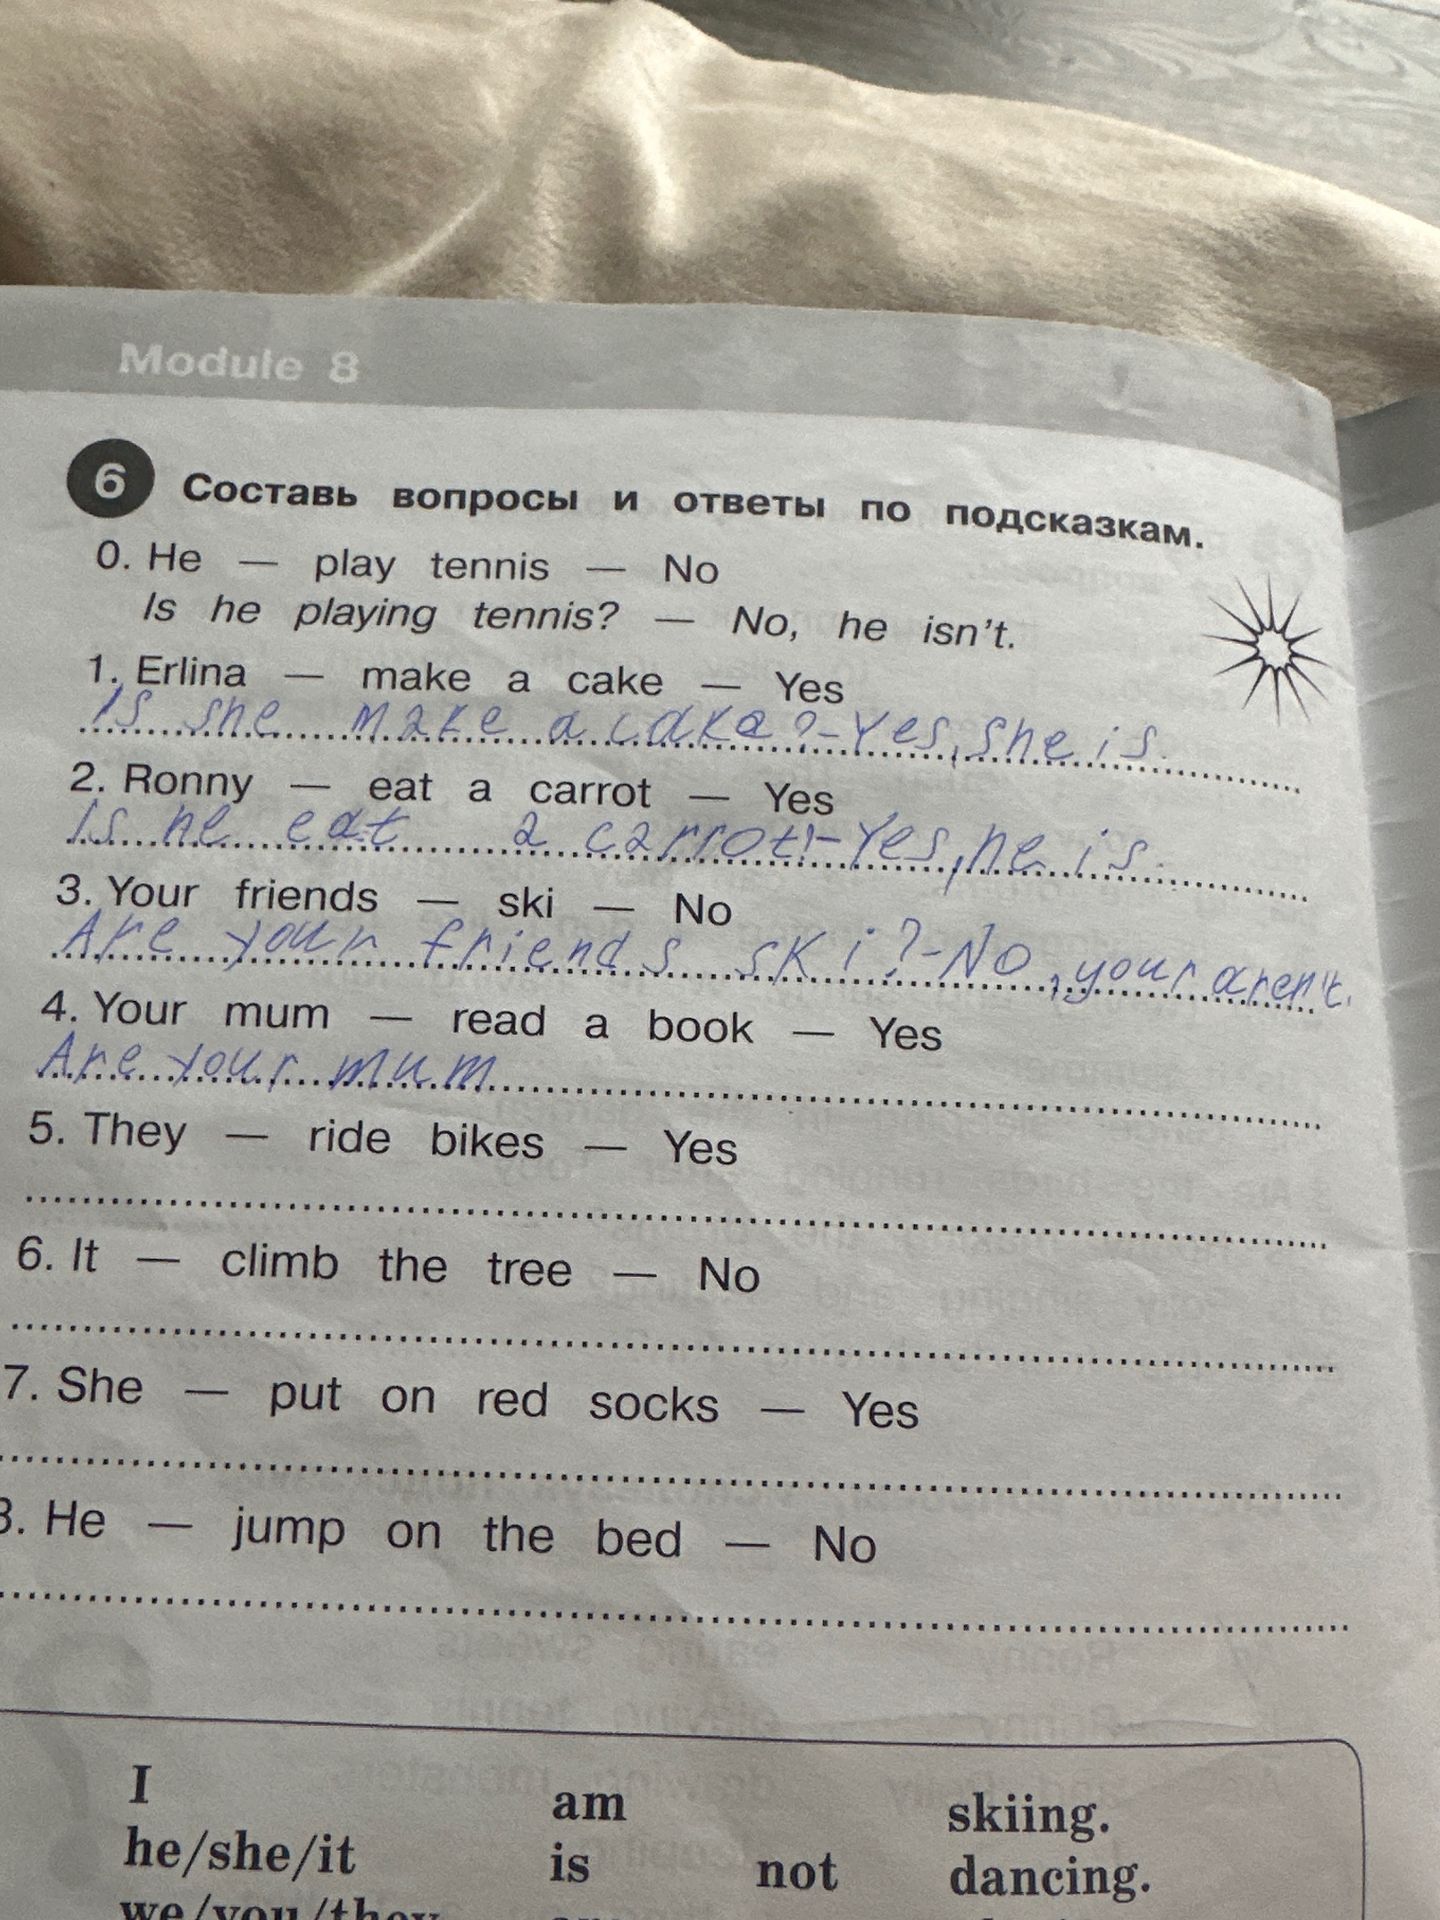 Module 8
6 Составь вопросы и ответы по подсказкам.
0. He — play tennis — No
Is he playing tennis? — No, he isn't.
1. Erlina — make a cake — Yes
Is she make a cake?-Yes, she is.
2. Ronny — eat a carrot — Yes
Is he eat a carrot?-Yes, he is.
3. Your friends — ski — No
Are your friends ski?-No, your aren't.
4. Your mum — read a book — Yes
Are your mum
5. They — ride bikes — Yes
6. It — climb the tree — No
7. She — put on red socks — Yes
8. He — jump on the bed — No
I am skiing.
he/she/it is not dancing.
we/you/they